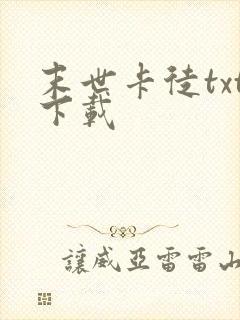 末世卡徒txt
下載
讓威亞雷雷山